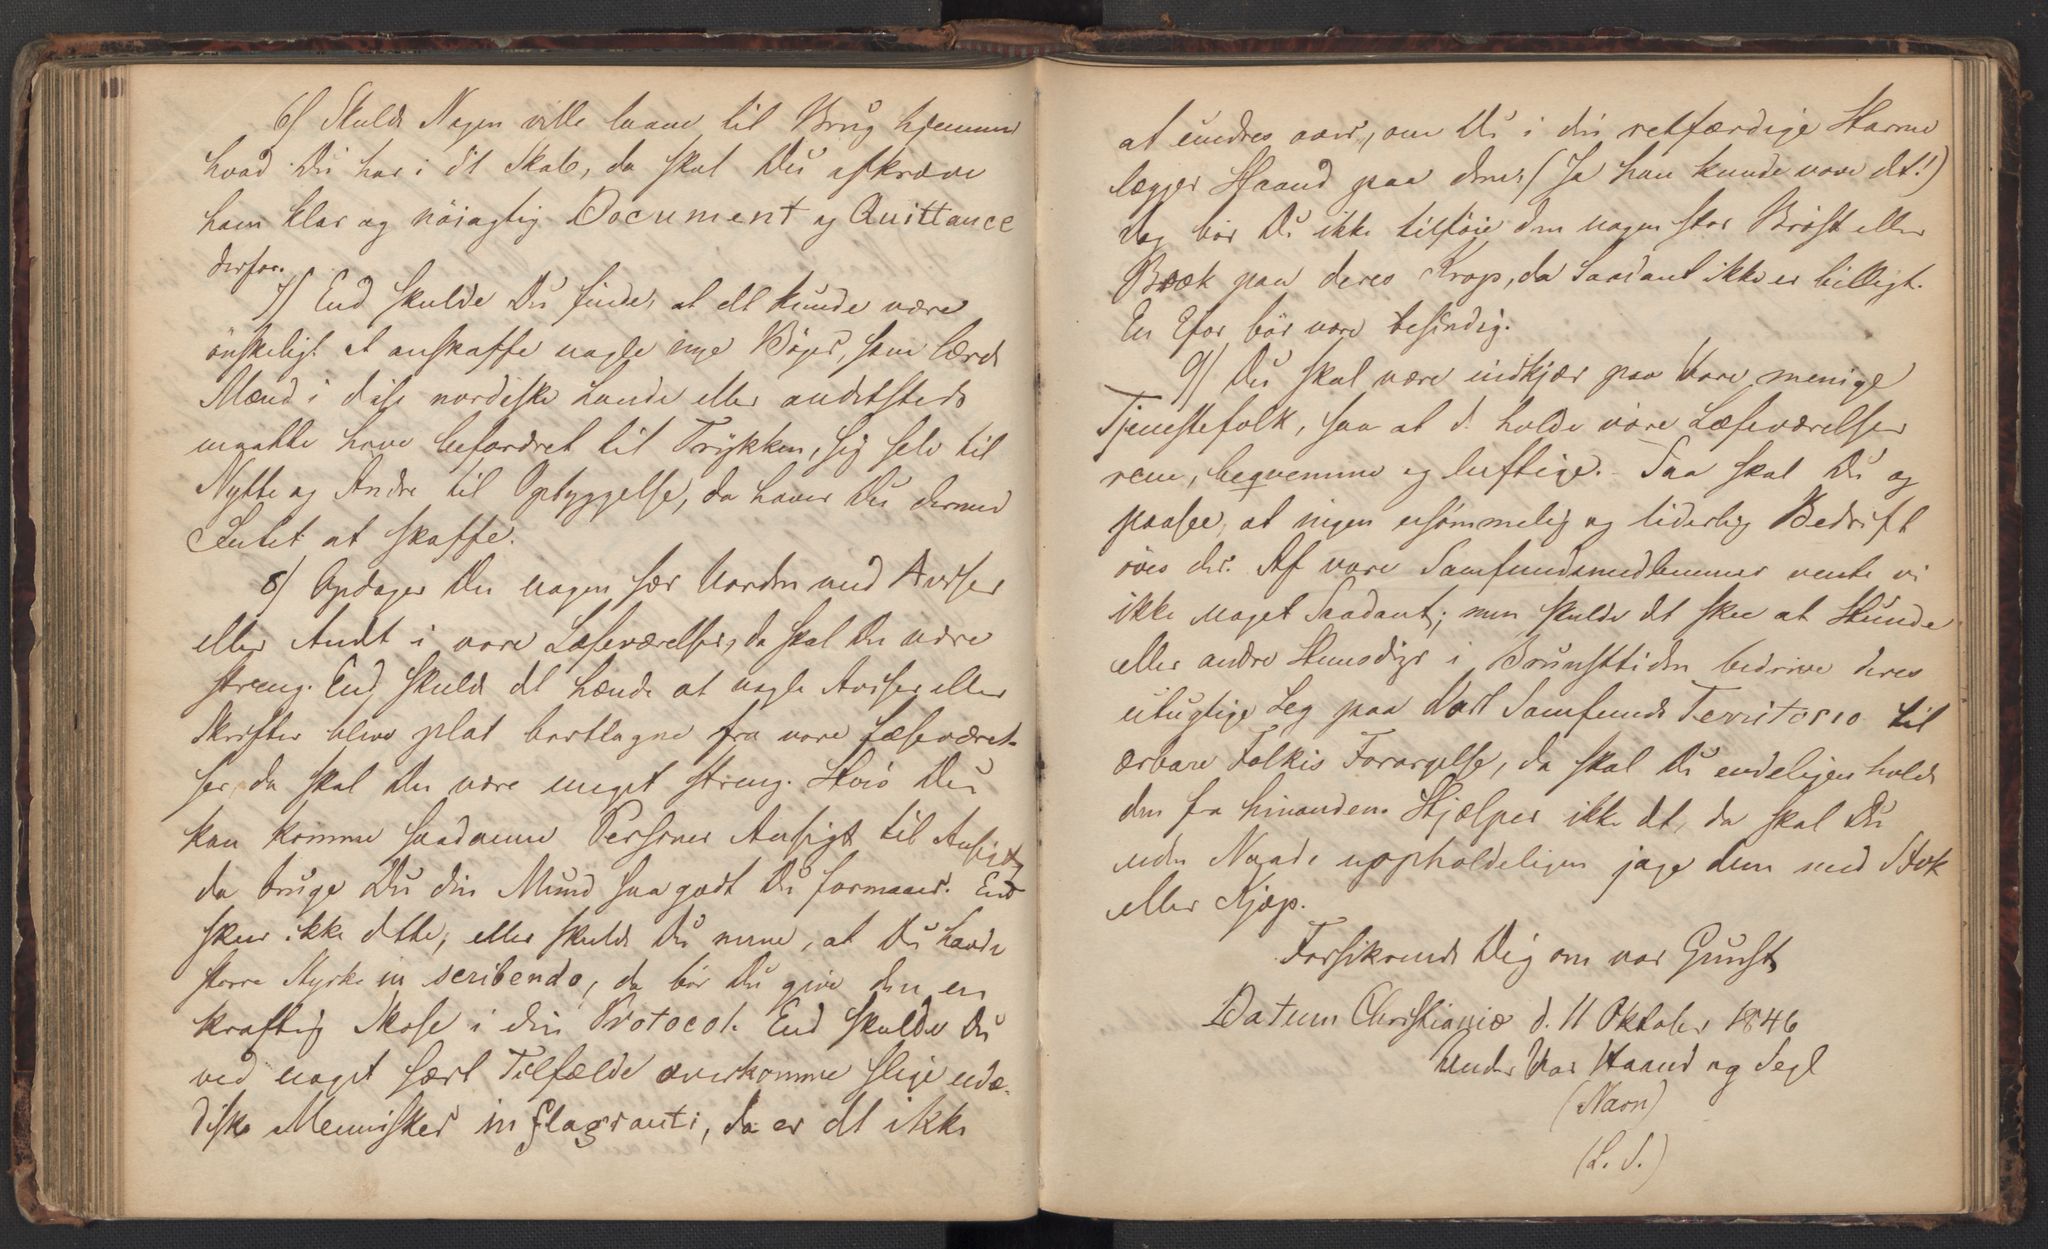 6/ Skulde Nogen ville laane til Brug hjemme
hvad Du har i dit Skab, da skal Du afkræve
ham klar og nöiagtig Document og Quittance
derfor.
7/ End skulde Du finde, at det kunde være
önskeligt at anskaffe nogle nye Böger, som lærde
Mænd i disse nordiske Lande eller andetsteds
maatte have befordret til Trykken, sig selv til
Nytte og Andre til Opbyggelse, da haver Du dermed
Intet at skaffe.
8/ Opdager Du nogen sær Uorden med Aviser
eller Andt i vore Læseværelser, da skal Du være
streng. End skulde det hænde at nogle Aviser eller
Skrifter bleve plat borttagne fra vore Læseværel-
ser, da skal Du være meget streng. Hvis Du
kan komme saadanne Personer Ansigt til Ansigt,
da bruge Du din Mund saa godt Du formaaer. End
skeer ikke dette, eller skulde Du mene, at Du havde
större Styrke in scribendo, da bör Du give dem en
kraftig Skose i din Protocol. End skulde Du
ved noget sært Tilfælde overkomme slige udæ-
diske Mennisker in flagranti, da er det ikke
at undres over, om Du i din retfærdige Harme
lægger Haand paa dem; (Ja han kunde vove det!)
dog bör Du ikke tilföie dem nogen stor Bröst eller
Bræk paa deres Krop, da Saadant ikke er billigt.
En Efor bör være besindig.
9/ Du skal være indkjær paa Vore menige
Tjenestefolk, saa at de holde vore Læseværelser
rene, beqvemme og luftige. - Saa skal Du og
paasee, at ingen usömmelig og liderlig Bedrift
öves der. Af vore Samfundsmedlemmer vente vi
ikke noget Saadant; men skulde det skee at Hunde
eller andre Huusdyr i Brunsttiden bedrive deres
utugtige Leg paa Vort Samfunds Territorio til
ærbare Folkis Forargelse, da skal Du endeligen holde
dem fra hinanden. Hjælper ikke det, da skal Du
uden Naade uopholdeligen jage dem med Stok
eller Kjæp.
Forsikrende Dig om vor Gunst,
Datum Christianiæ d. 11 Oktober 1846
Under Vor Haand og Segl
(Navn)
(L. S.)